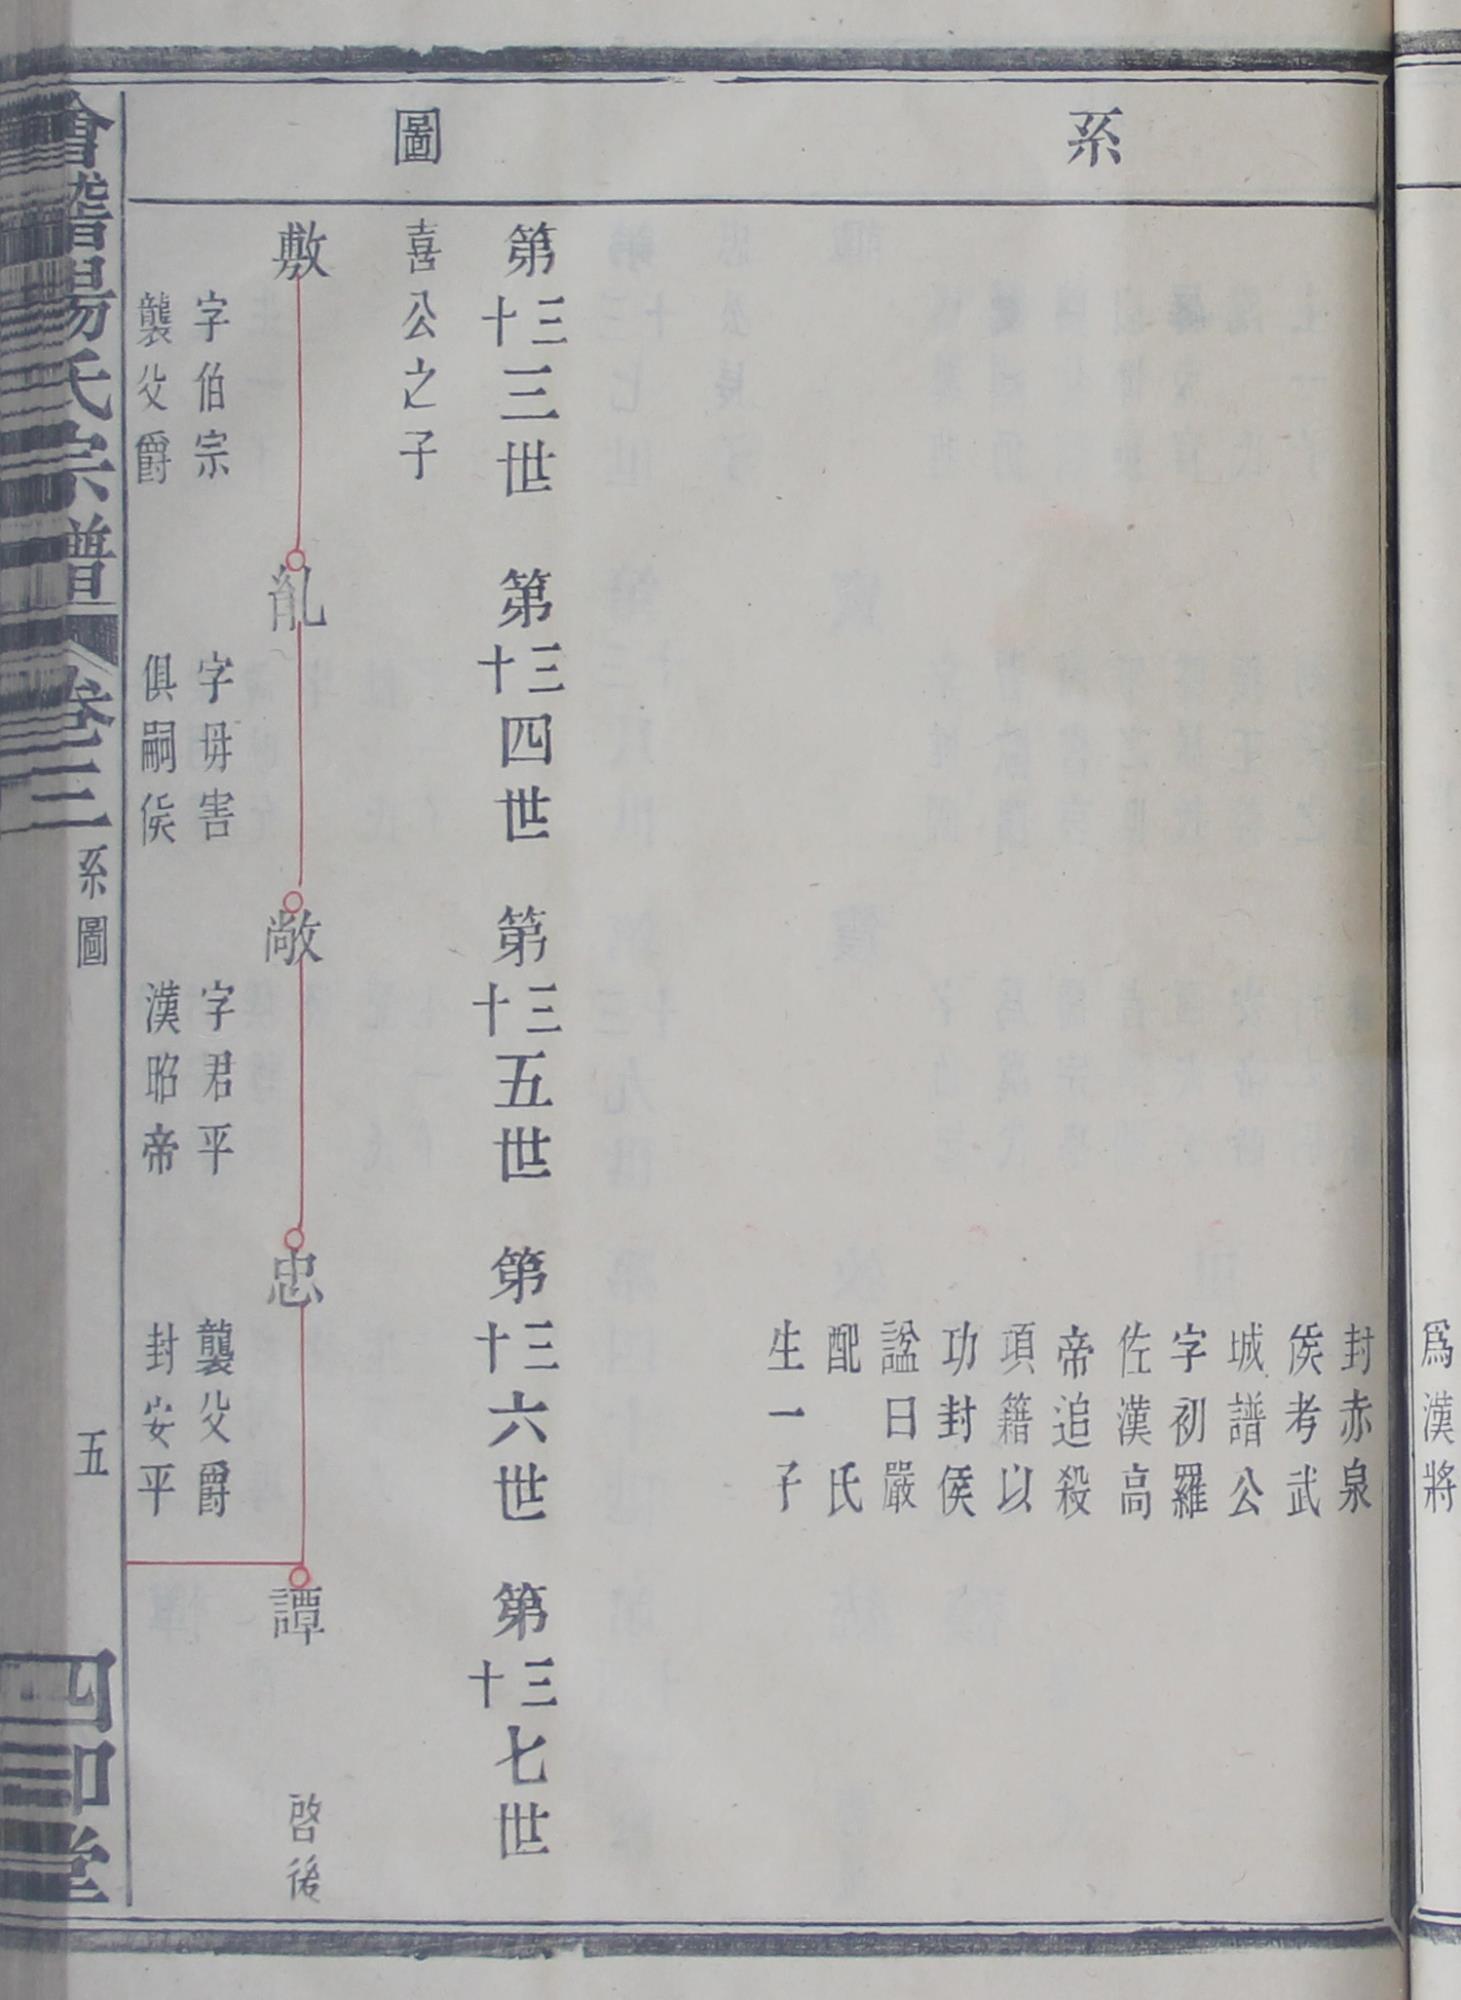 為漢將
系圖
封赤泉
侯考武
城譜公
字初羅
佐漢高
帝追殺
項籍以
功封侯
諡曰嚴
配　氏
生一子
第三十三世
第三十四世
第三十五世
第三十六世
第三十七世
喜公之子
敷
字伯宗
襲父爵
胤
字毋害
俱嗣侯
敞
字君平
漢昭帝
忠
襲父爵
封安平
譚
啓後
會稽楊氏宗譜
卷三
系圖
五
四知堂